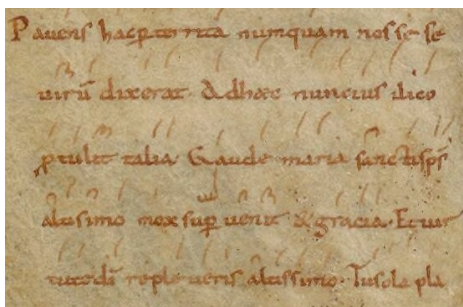 Pavens hac pternita numquam nosse se
virū dixerat · & ad hæc nuncius ilico
ptulit talia · Gaude maria sanctispś
altisimo mox sup venit & gracia · Et vir
tute dī repleveris altissimo · Tu sola pla